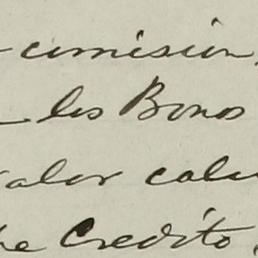 emision,
los Bonos
valor calu
he Credito,